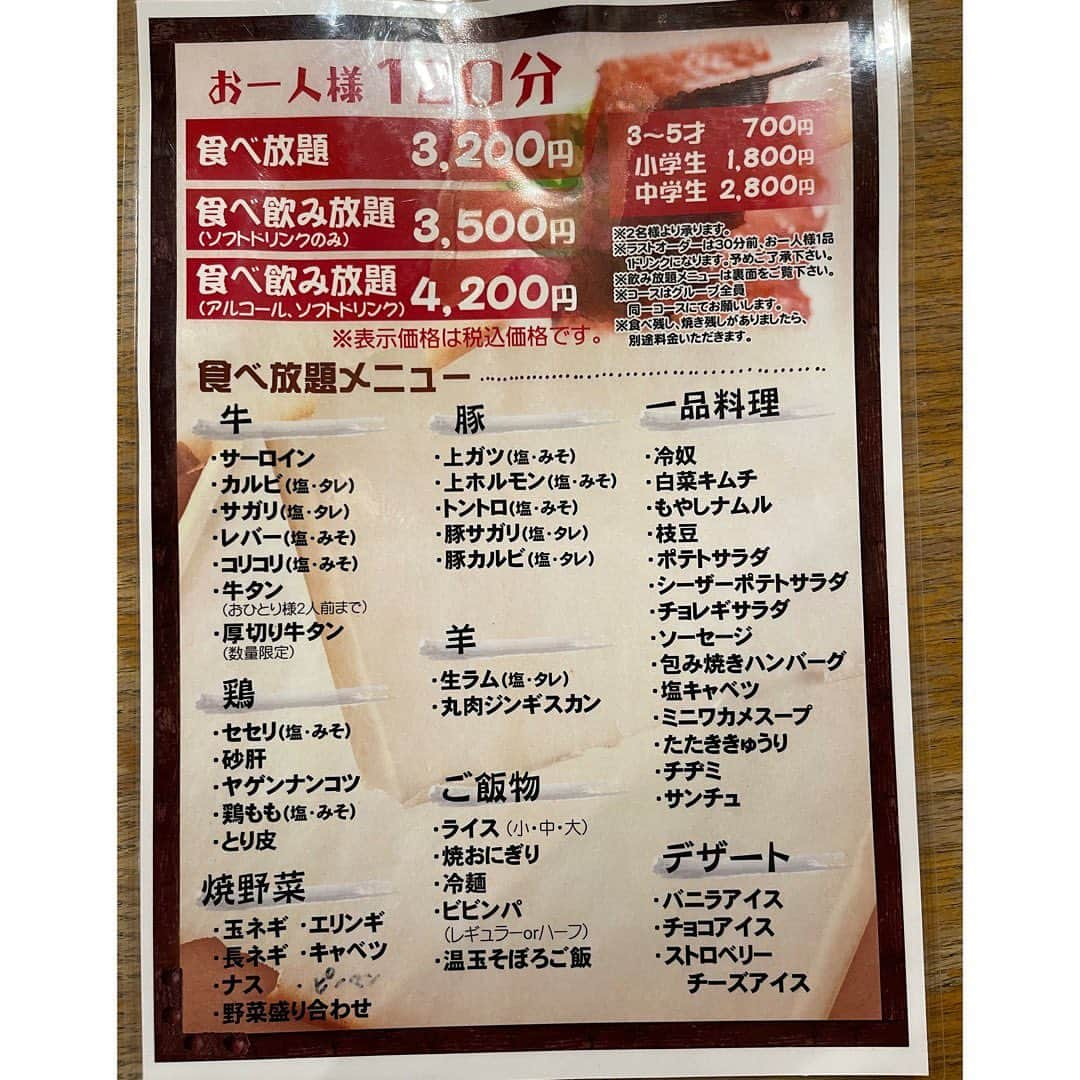 お一人様 120分
食べ放題 3,200円
食べ飲み放題 3,500円
(ソフトドリンクのみ)
食べ飲み放題 4,200円
(アルコール、ソフトドリンク)
※表示価格は税込価格です。
3〜5才 700円
小学生 1,800円
中学生 2,800円
※2名様より承ります。
※ラストオーダーは30分前、お一人様1品
1ドリンクになります。予めご了承下さい。
※飲み放題メニューは裏面をご覧下さい。
※コースはグループ全員
同一コースにてお願いします。
※食べ残し、焼き残しがありましたら、
別途料金いただきます。
食べ放題メニュー
牛
・サーロイン
・カルビ(塩・タレ)
・サガリ(塩・タレ)
・レバー(塩・みそ)
・コリコリ(塩・みそ)
・牛タン
(おひとり様2人前まで)
・厚切り牛タン
(数量限定)
鶏
・セセリ(塩・みそ)
・砂肝
・ヤゲンナンコツ
・鶏もも(塩・みそ)
・とり皮
焼野菜
・玉ネギ ・エリンギ
・長ネギ ・キャベツ
・ナス ・ピーマン
・野菜盛り合わせ
豚
・上ガツ(塩・みそ)
・上ホルモン(塩・みそ)
・トントロ(塩・みそ)
・豚サガリ(塩・タレ)
・豚カルビ(塩・タレ)
羊
・生ラム(塩・タレ)
・丸肉ジンギスカン
ご飯物
・ライス(小・中・大)
・焼おにぎり
・冷麺
・ビビンパ
(レギュラーorハーフ)
・温玉そぼろご飯
一品料理
・冷奴
・白菜キムチ
・もやしナムル
・枝豆
・ポテトサラダ
・シーザーポテトサラダ
・チョレギサラダ
・ソーセージ
・包み焼きハンバーグ
・塩キャベツ
・ミニワカメスープ
・たたききゅうり
・チヂミ
・サンチュ
デザート
・バニラアイス
・チョコアイス
・ストロベリー
チーズアイス